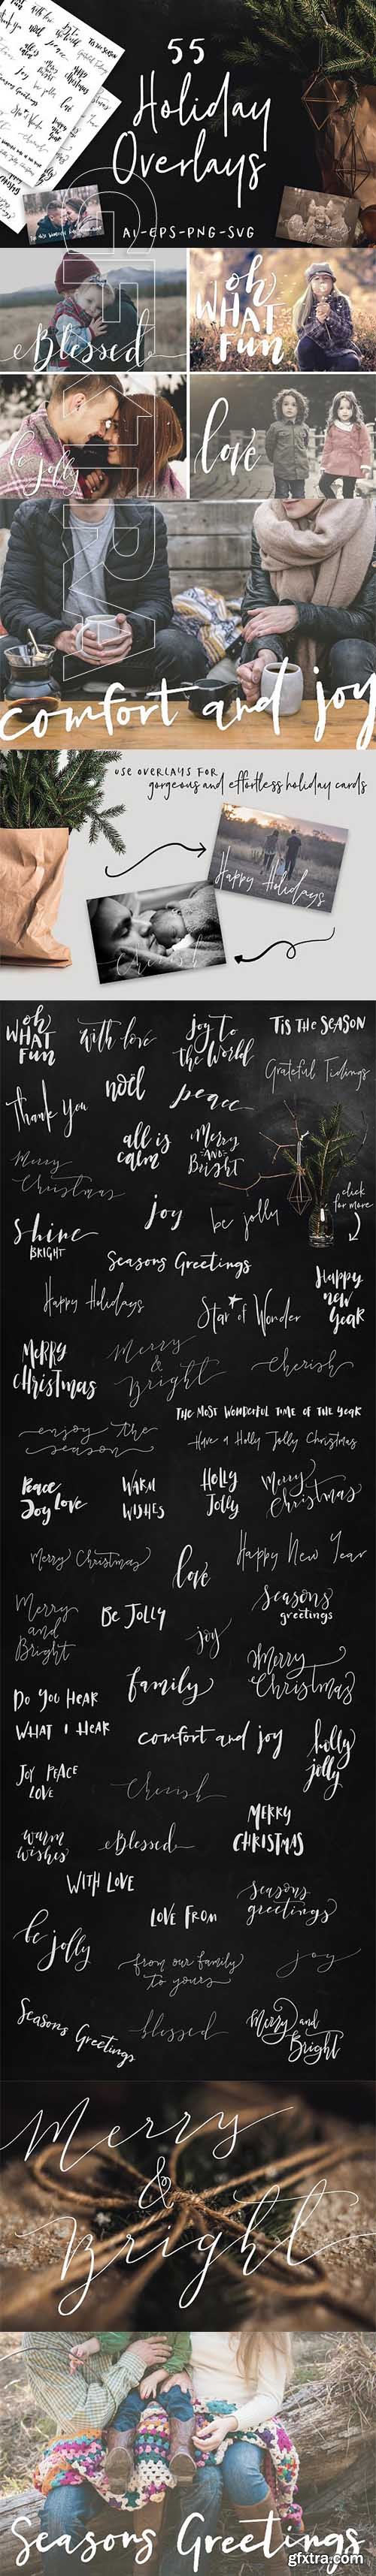 55
Holiday
Overlays
AI-EPS-PNG-SVG
GFXTRA
Blessed
oh
WHAT
Fun
be jolly
love
comfort and joy
USE OVERLAYS FOR
gorgeous and effortless holiday cards
Happy Holidays
Cherish
oh
WHAT
Fun
with love
joy to
the World
TIS THE SEASON
Grateful Tidings
Thank You
noël
peace
all is
calm
Merry
AND
Bright
Merry
Christmas
click
for more
joy
be jolly
Shine
BRIGHT
Seasons Greetings
Happy
new
year
Happy Holidays
Star of Wonder
Merry
Christmas
Merry
&
Bright
Cherish
THE MOST WONDERFUL TIME OF THE YEAR
enjoy the
season
Have a Holly Jolly Christmas
Peace
Joy Love
WARM
WISHES
HOLLY
JOLLY
Merry
Christmas
Merry Christmas
love
Happy New Year
Merry
and
Bright
BE JOLLY
joy
Seasons
greetings
Merry
Christmas
family
DO YOU HEAR
WHAT I HEAR
comfort and joy
holly
jolly
JOY PEACE
LOVE
Cherish
MERRY
CHRISTMAS
warm
wishes
Blessed
WITH LOVE
LOVE FROM
Seasons
greetings
be
jolly
from our family
to yours
joy
Seasons Greetings
blessed
Merry and
Bright
Merry
&
Bright
Seasons Greetings
gfxtra.com